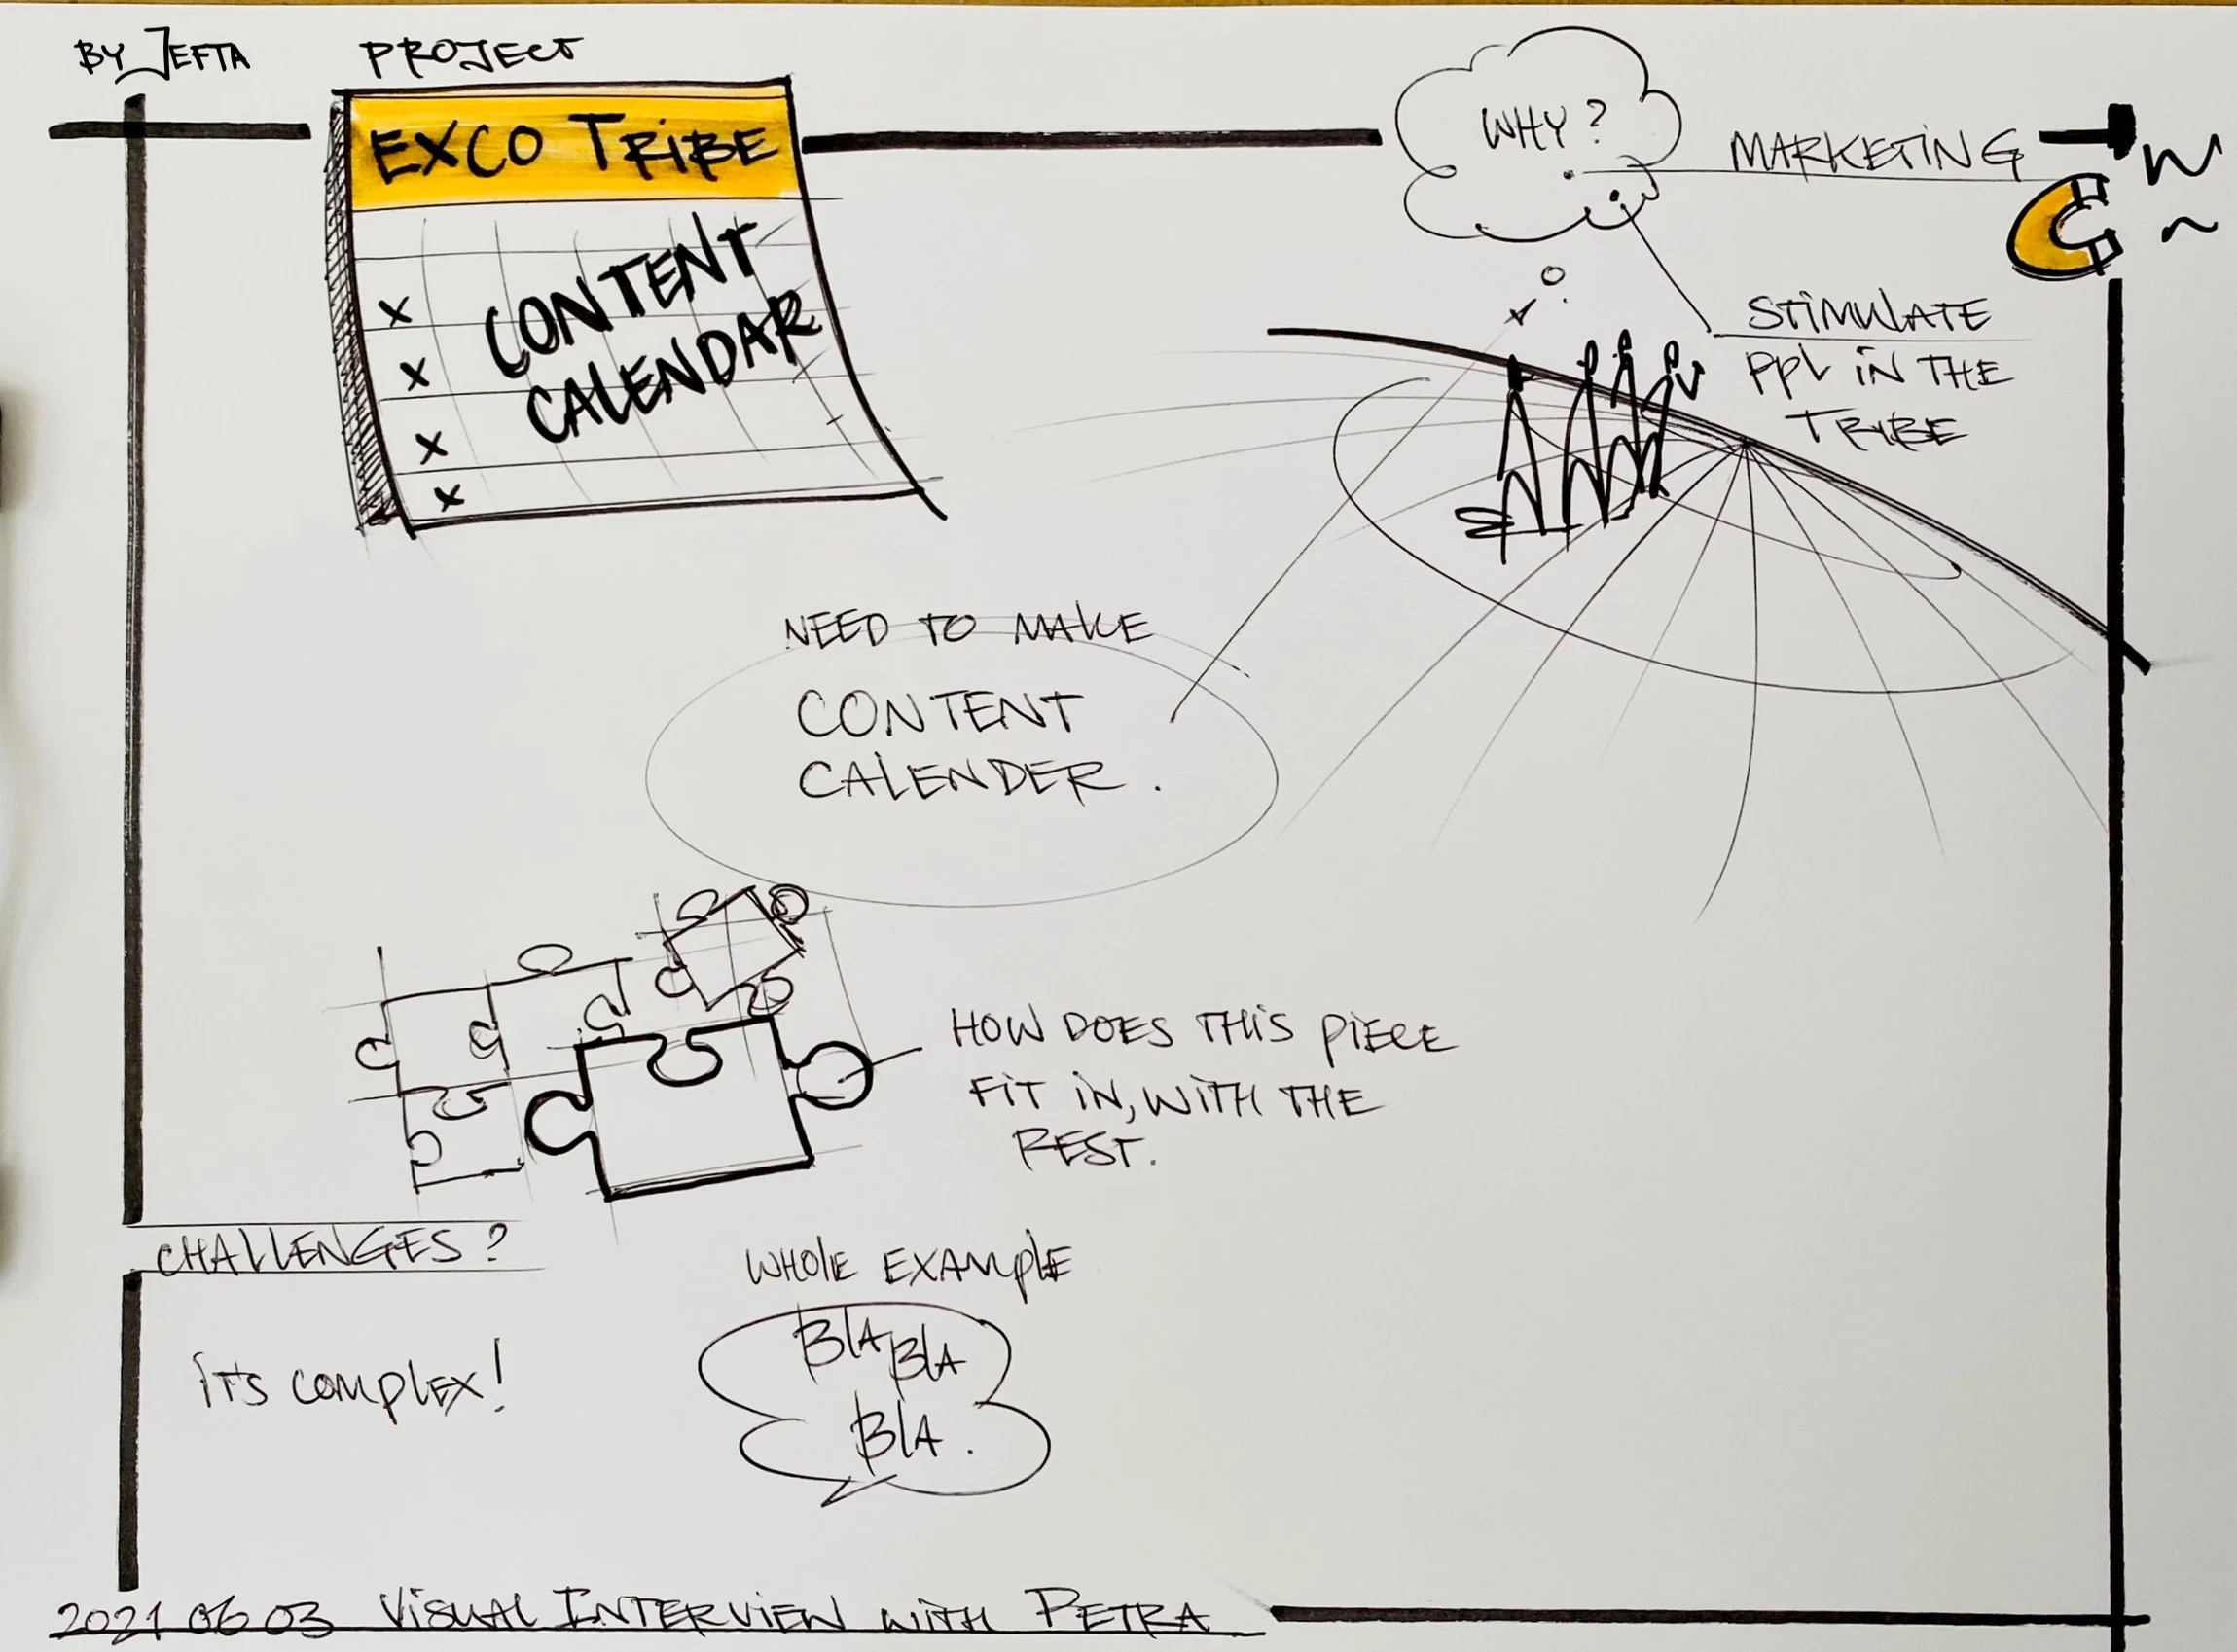 BY JEFTA
PROJECT
EXCO TRIBE
CONTENT
CALENDAR
x
x
x
x
WHY?
MARKETING
STIMULATE
PPL IN THE
TRIBE
NEED TO MAKE
CONTENT
CALENDER.
HOW DOES THIS PIECE
FIT IN, WITH THE
REST.
CHALLENGES?
iTS COMPLEX!
WHOLE EXAMPLE
BLA BLA
BLA.
2021 06 03 VISUAL INTERVIEW WITH PETRA